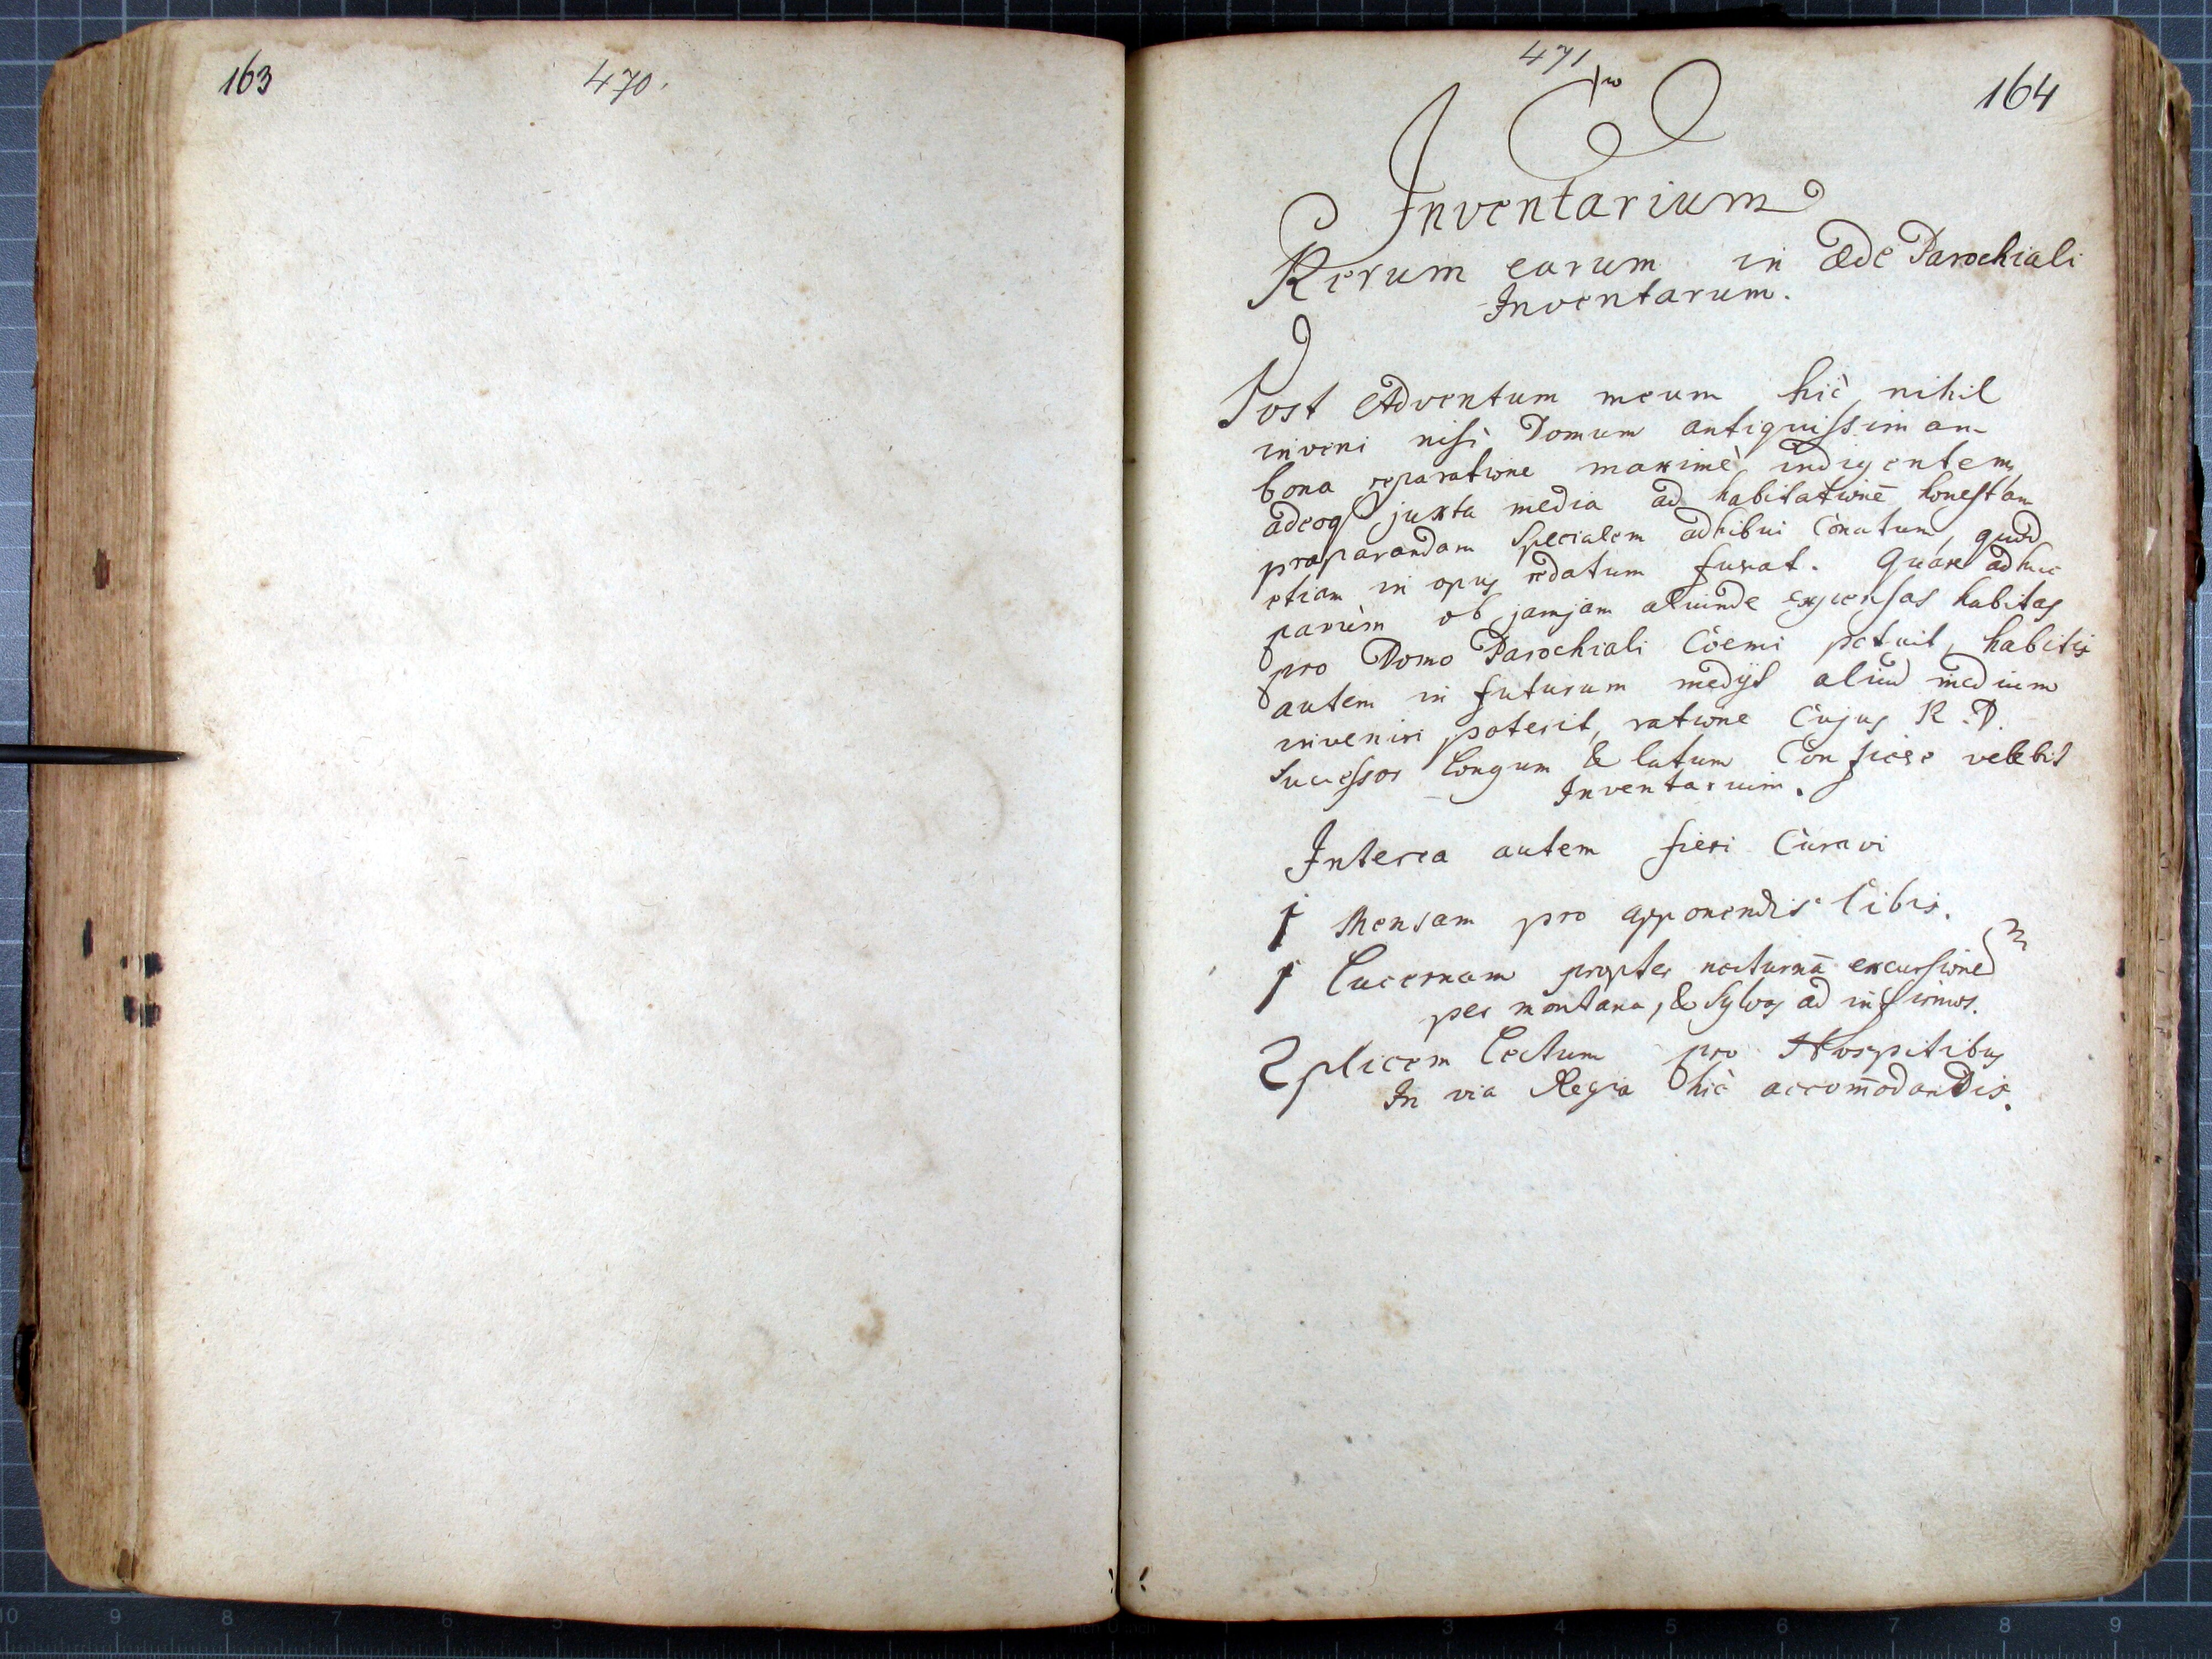 163
470.
471
164
Inventarium
Rerum earum in Æde Parochiali
Inventarum.
Post Adventum meum hic nihil
inveni nisi Domum antiquissimam
bona reparatione maximè indigentem,
adeoq juxta media ad habitationē honestam
præparandam Specialem adhibui Conatum, quod
etiam in opus redatum fuerat. Quare adhuc
parum ob jamjam aliunde expensas habitas
pro Domo Parochiali Coemi potuit, habitis
autem in futurum medijs aliud medium
inveniri poterit, ratione Cujus R. D.
Sucessor longum & latum Conficere velebit
Inventarium.
Interea autem fieri Curavi
1 Mensam pro apponendis Cibis.
1 Lucernam propter nocturnā excursionē
per montana, & Sylvas ad infirmos.
2plicem Lectum pro Hospitibus
In via Regia hic accom̄odandis.
10 9 8 7 6 5
3 4 5 6 7 8 9